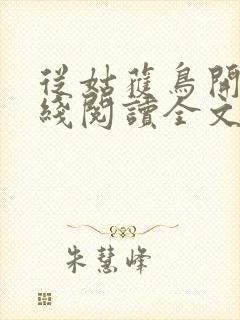 從姑蘿鳥開
綫閱讀全文
朱慧峰